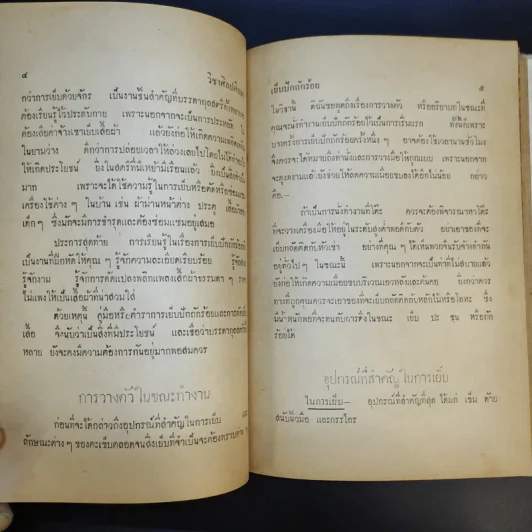 ๔
วิชาศิลปศึกษา
กว่าการเย็บด้วยจักร เป็นงานชิ้นสำคัญที่บรรดากุลสตรีทั้งหลาย
ต้องเรียนรู้ไว้ประดับกาย เพราะนอกจากจะเป็นการประหยัด
ต้องเสียค่าจ้างเขาเย็บเสื้อผ้า แล้วยังก่อให้เกิดความเพลิดเพลิน
ในยามว่าง ดีกว่าการปล่อยเวลาให้ล่วงเลยไปโดยไม่ได้ทำอะไร
ให้เกิดประโยชน์ ยิ่งในสตรีที่มีเหย้ามีเรือนแล้ว ยิ่งเป็นสิ่งจำเป็น
มาก เพราะจะได้ใช้ความรู้ในการเย็บหรือดัดหรือซ่อมแซม
เครื่องใช้ต่าง ๆ ในบ้าน เช่น ผ้าม่านหน้าต่าง ประตู เสื้อผ้าของ
เด็ก ๆ ซึ่งมักจะมีการชำรุดและต้องซ่อมแซมอยู่เสมอ
ประการสุดท้าย การเรียนรู้ในเรื่องการเย็บปักถักร้อย
เป็นงานที่ฝึกหัดให้คุณ ๆ รู้จักความละเอียดเรียบร้อย รู้จัก
รู้จักงาม รู้จักการดัดแปลงพลิกแพลงเสื้อผ้าธรรมดา ๆ ราคา
ไม่แพงให้เป็นเสื้อผ้าที่น่าสวมใส่
ด้วยเหตุนี้ คู่มือหรือตำราการเย็บปักถักร้อยและการตัดเย็บ
เสื้อ จึงนับว่าเป็นสิ่งที่มีประโยชน์ และเชื่อว่าบรรดากุลสตรีทั้ง
หลาย ยังจะคงมีความต้องการกันอยู่มากพอสมควร
การวางตัวในขณะทำงาน
ก่อนที่จะได้กล่าวถึงอุปกรณ์ที่สำคัญในการเย็บ และ
ลักษณะต่าง ๆ ของตะเข็บตลอดจนสิ่งเย็บที่จำเป็นจะต้องทราบต่าง ๆ
เย็บปักถักร้อย
๕
ในวิชานี้ ดิฉันขอพูดถึงเรื่องการวางตัว หรืออริยาบถในขณะที่
คุณจะนั่งทำงานเย็บปักถักร้อยไว้เป็นการเริ่มแรก ทั้งนี้ก็เพราะ
บางครั้งการเย็บปักถักร้อยครั้งหนึ่ง ๆ อาจต้องใช้เวลานานชั่วโมง
จึงควรจะได้หมายถึงท่านั่งและการวางมือให้ถูกแบบ เพราะนอกจาก
จะดูงดงามแล้วยังช่วยให้ลดความเมื่อยขบลงได้อีกไม่น้อย กล่าว
คือ.—
ถ้าเป็นการนั่งทำงานที่โต๊ะ ควรจะต้องพิจารณาหาโต๊ะ
ที่จะวางเครื่องมือให้อยู่ในระดับสูงต่ำพอดีกับตัว อย่าเอาของที่จะ
เย็บกลัดติดกับหัวเข่า อย่างที่คุณ ๆ ได้เห็นพวกจีนรับจ้างทำกัน
อยู่ทั่วไป ๆ ในขณะนี้ เพราะนอกจากจะเป็นท่าที่ไม่สบายแล้ว
ยังก่อให้เกิดความเมื่อยขบบริเวณเอวหลังและต้นคอ ยิ่งกว่าควร
ทางที่ถูกคุณควรจะเอาของที่จะเย็บกลัดติดกับหลักไม้หรือโลหะ ซึ่ง
มีน้ำหนักพอที่จะทนกับการดึงในขณะ เย็บ ปะ ชุน หรือถัก
ร้อยได้
อุปกรณ์ที่สำคัญในการเย็บ
ในการเย็บ— อุปกรณ์ที่สำคัญที่สุด ได้แก่ เข็ม ด้าย
สนับนิ้วมือ และกรรไกร